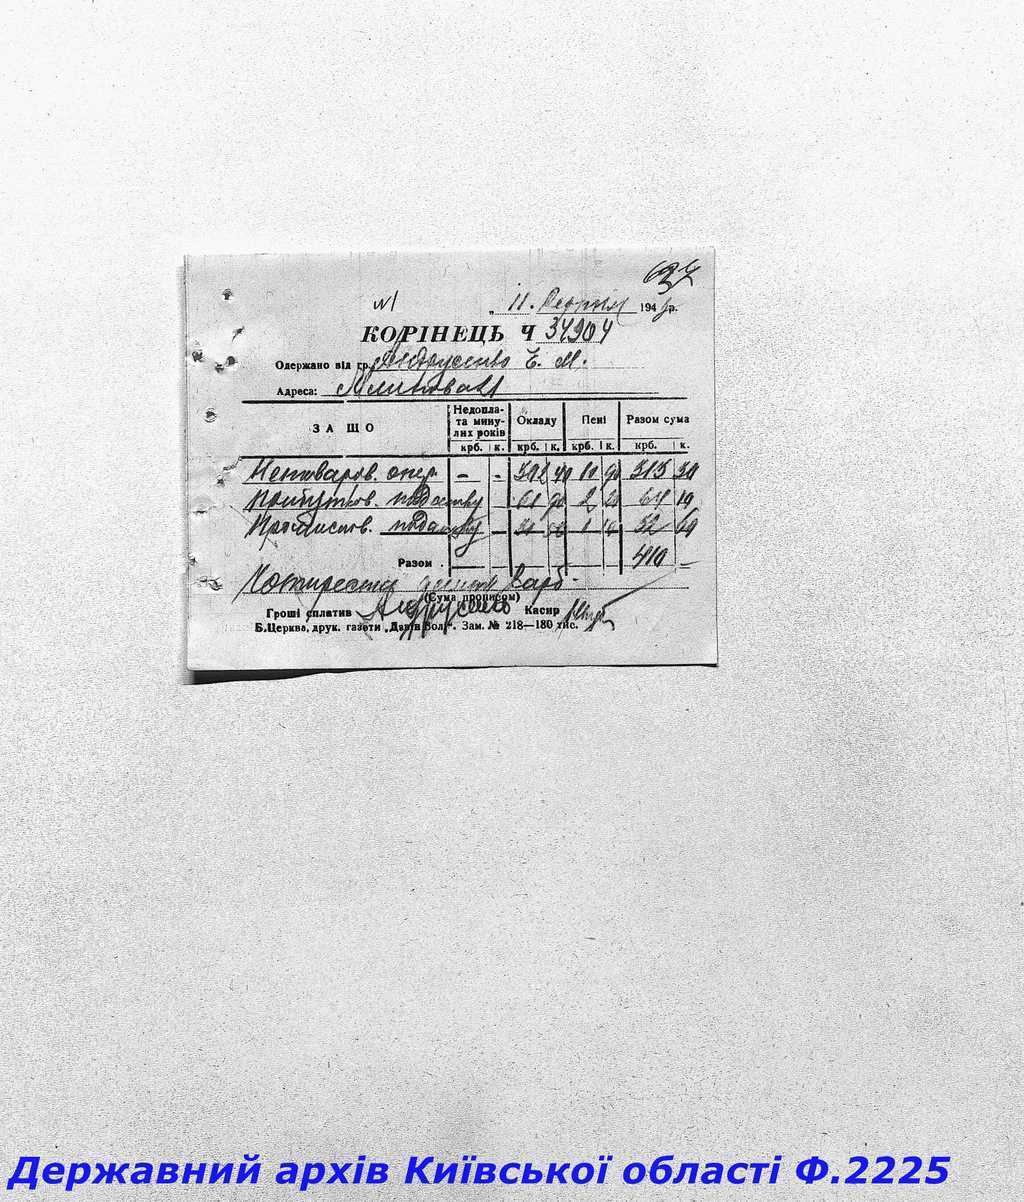 637
№1 „ 11. Серпня 194 р.
КОРІНЕЦЬ Ч 34904
Одержано від гр. Андрусенко Є. М.
Адреса:
ЗА ЩО Недопла- та мину- лих років Окладу Пені Разом сума
крб. к. крб. к. крб. к. крб. к.
Нетоваров. опер. — - 302 40 10 90 313 30
Прибутков. податку 61 90 2 20 64 10
Промислов. податку — 32 60
Разом 410 —
Чотириста десять карб.
(Сума прописом)
Гроші сплатив Андрусенко Касир
Б.Церква, друк. газети „Дзвін Волі“. Зам. № 218—180 тис.
Державний архів Київської області Ф.2225